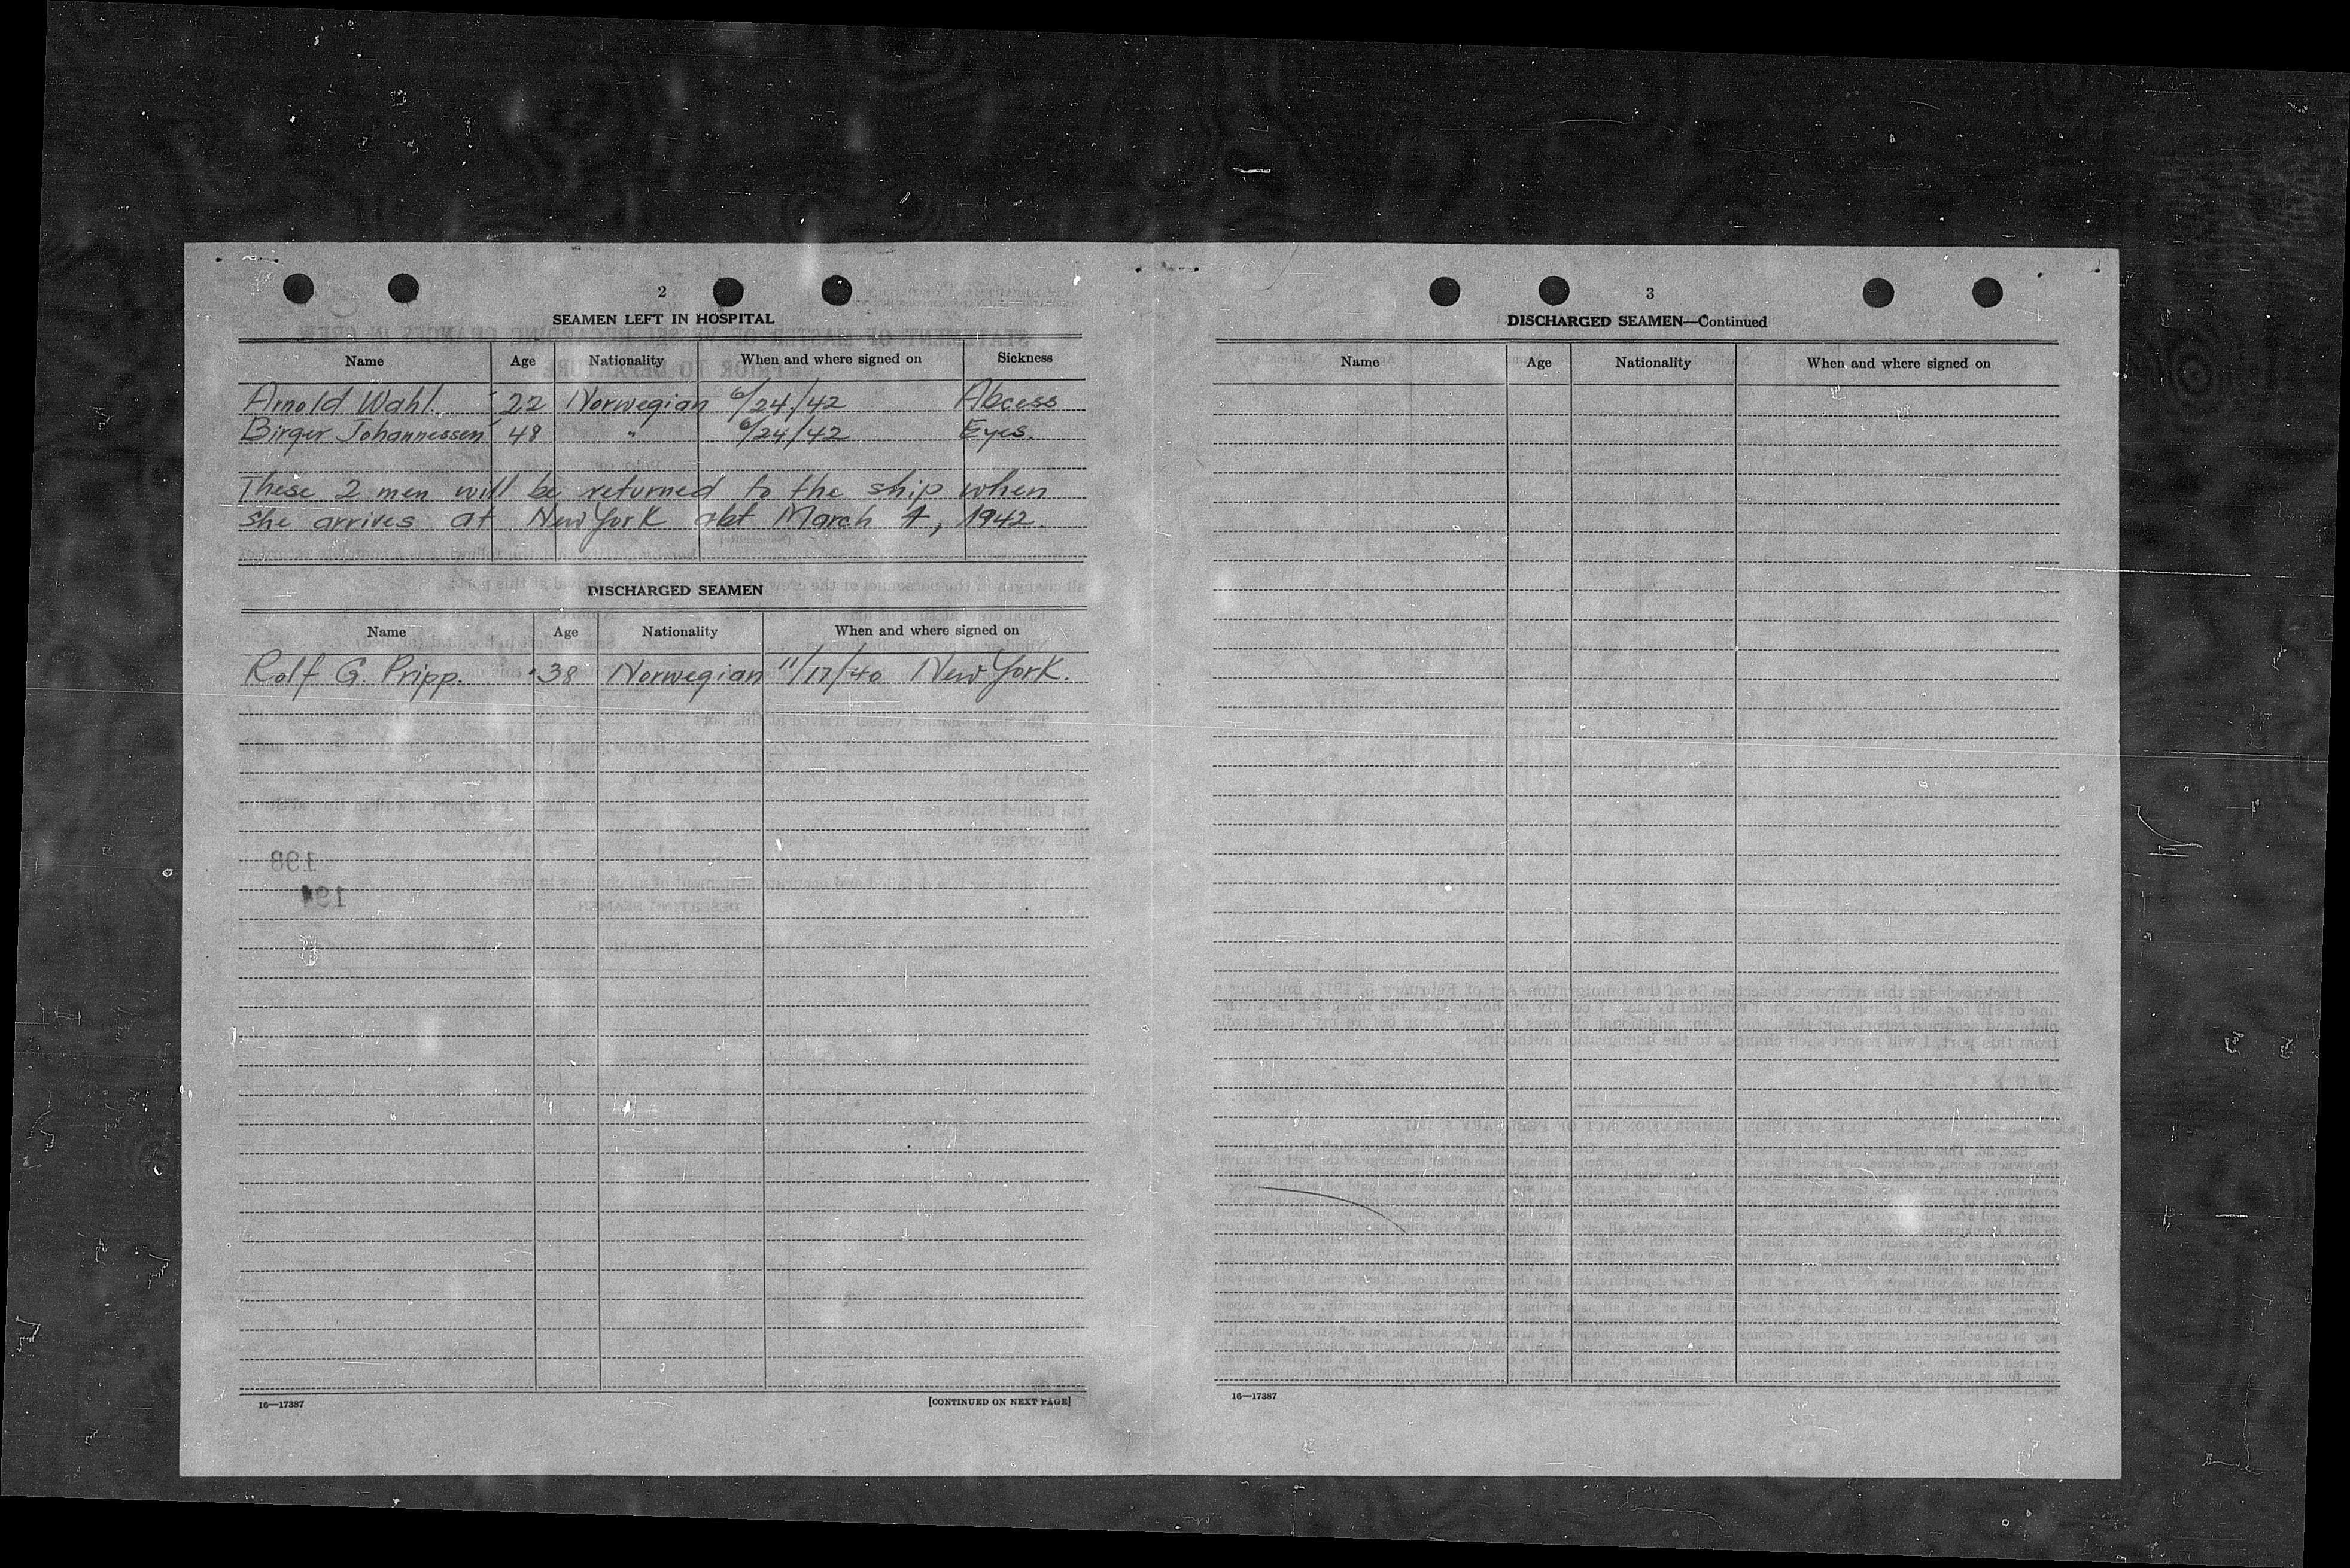 2
SEAMEN LEFT IN HOSPITAL
Name Age Nationality When and where signed on Sickness
Arnold Wahl. 22 Norwegian 6/24/42 Abcess
Birger Johannessen 48 " 6/24/42 Eyes.
These 2 men will be returned to the ship when
she arrives at New York abt March 4, 1942.
DISCHARGED SEAMEN
Name Age Nationality When and where signed on
Rolf G. Pripp. 38 Norwegian 11/17/40 New York.
198
191
16—17387 [CONTINUED ON NEXT PAGE]
3
DISCHARGED SEAMEN—Continued
Name Age Nationality When and where signed on
16—17387